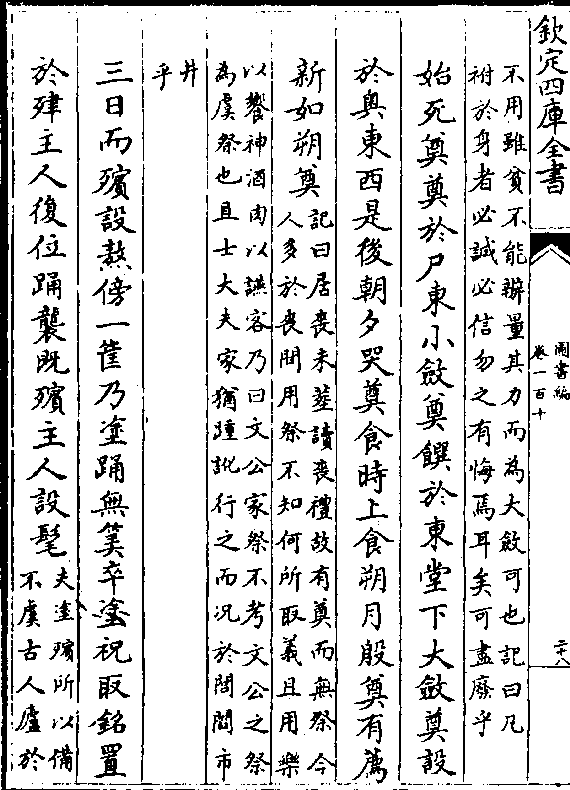 欽定四庫全書
圖書編
卷一百十
二十八
不用雖貧不能辦量其力而為大斂可也記曰凡
祔於身者必誠必信勿之有悔焉耳矣可盡廢乎
始死奠奠於尸東小斂奠饌於東堂下大斂奠設
於奥東西是後朝夕哭奠食時上食朔月殷奠有薦
新如朔奠
記曰居喪未塟讀喪禮故有奠而無祭今
人多於喪間用祭不知何所取義且用樂
以饗神酒肉以讌客乃曰文公家祭不考文公之祭
為虞祭也且士大夫家猶踵訛行之而况於閭閻市
井
乎
三日而殯設熬傍一筐乃塗踊無筭卒塗祝取銘置
於肂主人復位踊襲既殯主人設髦
夫塗殯所以備
不虞古人廬於